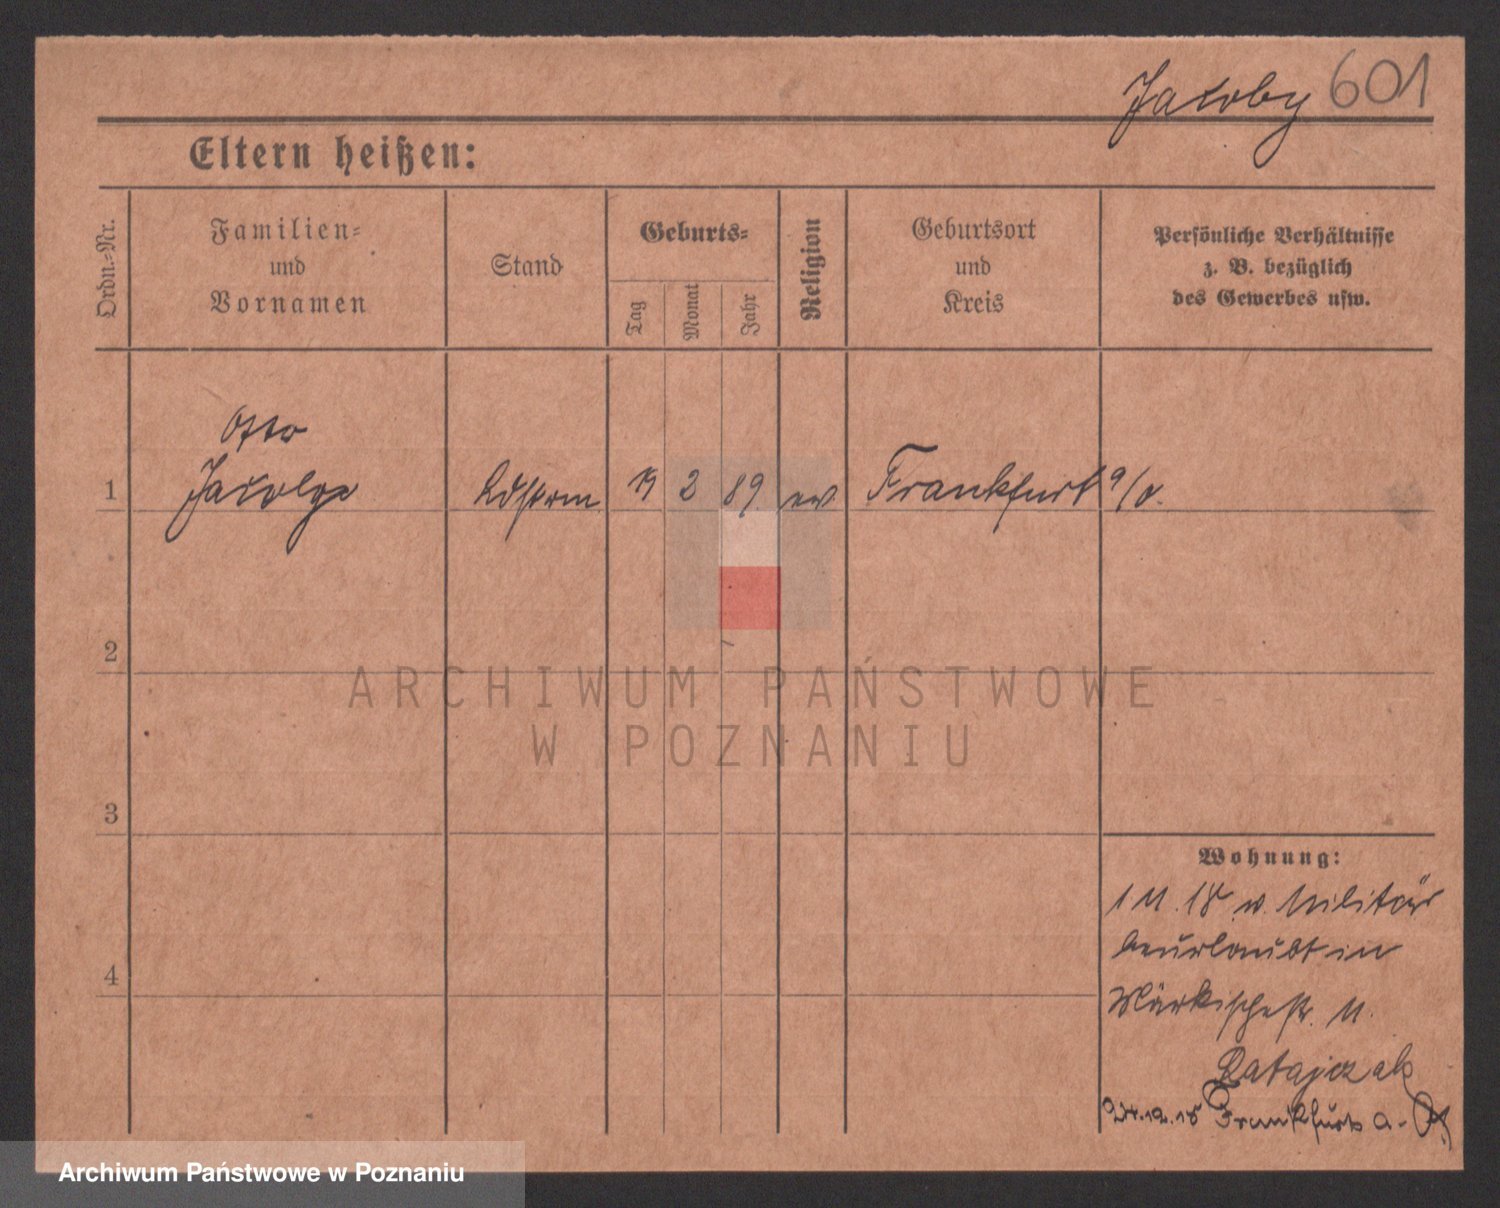 Jacoby 601
Eltern heißen:
Ordn.-Nr.
Familien-
und
Vornamen
Stand
Geburts-
Tag
Monat
Jahr
Religion
Geburtsort
und
Kreis
Persönliche Verhältnisse
z. B. bezüglich
des Gewerbes usw.
Otto
1 Jacoby Ldstrm 19 2 89 ev Frankfurt a/O.
2
ARCHIWUM PAŃSTWOWE
W POZNANIU
3
Wohnung:
1 11. 18 v. Militär
beurlaubt in
4
Märkischestr. 11.
Ratajczak
24.12.18 Frankfurt a-O
Archiwum Państwowe w Poznaniu